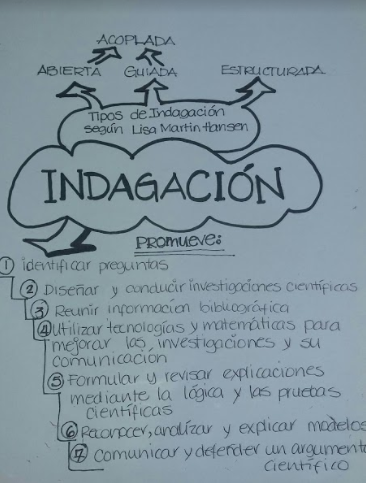 ACOPLADA
ABIERTA GUIADA ESTRUCTURADA
Tipos de Indagación
según Lisa Martin Hansen
INDAGACIÓN
PROMUEVE:
1 identificar preguntas
2 Diseñar y conducir investigaciones científicas
3 Reunir información bibliográfica
4 Utilizar tecnologías y matemáticas para
mejorar las investigaciones y su
comunicación
5 Formular y revisar explicaciones
mediante la lógica y las pruebas
científicas
6 Reconocer, analizar y explicar modelos
7 Comunicar y defender un argumento
científico